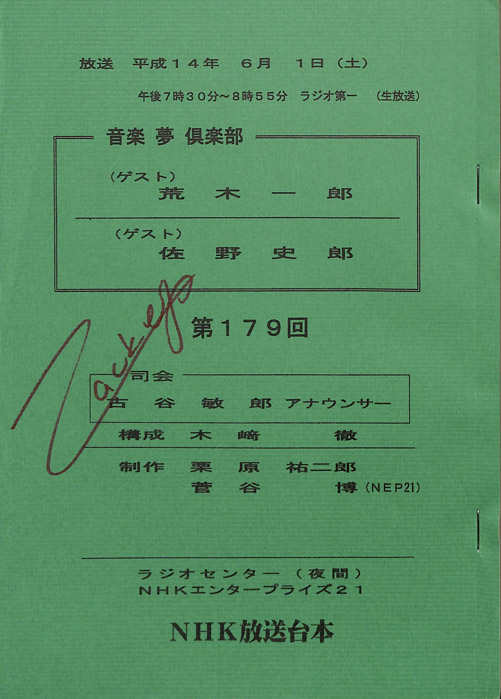 放送 平成14年 6月 1日(土)
午後7時30分~8時55分 ラジオ第一 (生放送)
音楽 夢 倶楽部
(ゲスト)
荒木一郎
(ゲスト)
佐野史郎
第179回
司会
古谷敏郎 アナウンサー
構成 木﨑 徹
制作 栗原 祐二郎
菅谷 博(NEP21)
ラジオセンター(夜間)
NHKエンタープライズ21
NHK放送台本